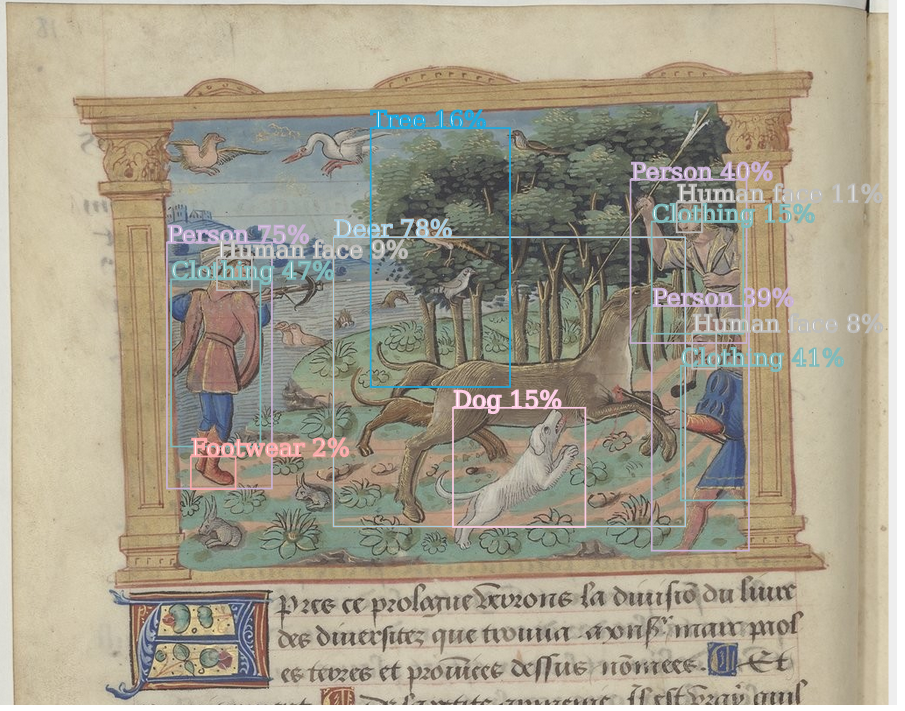 Tree 16%
Person 40%
Human face 11%
Clothing 15%
Deer 78%
Person 75%
Human face 9%
Clothing 47%
Person 39%
Human face 8%
Clothing 41%
Dog 15%
Footwear 2%
Apres ce prologue verons la diuisiõ du liure
des diuersitez que trouua marc pol
es terres et prouĩces dessus nõmees. Et
De la petite Il est vray quil